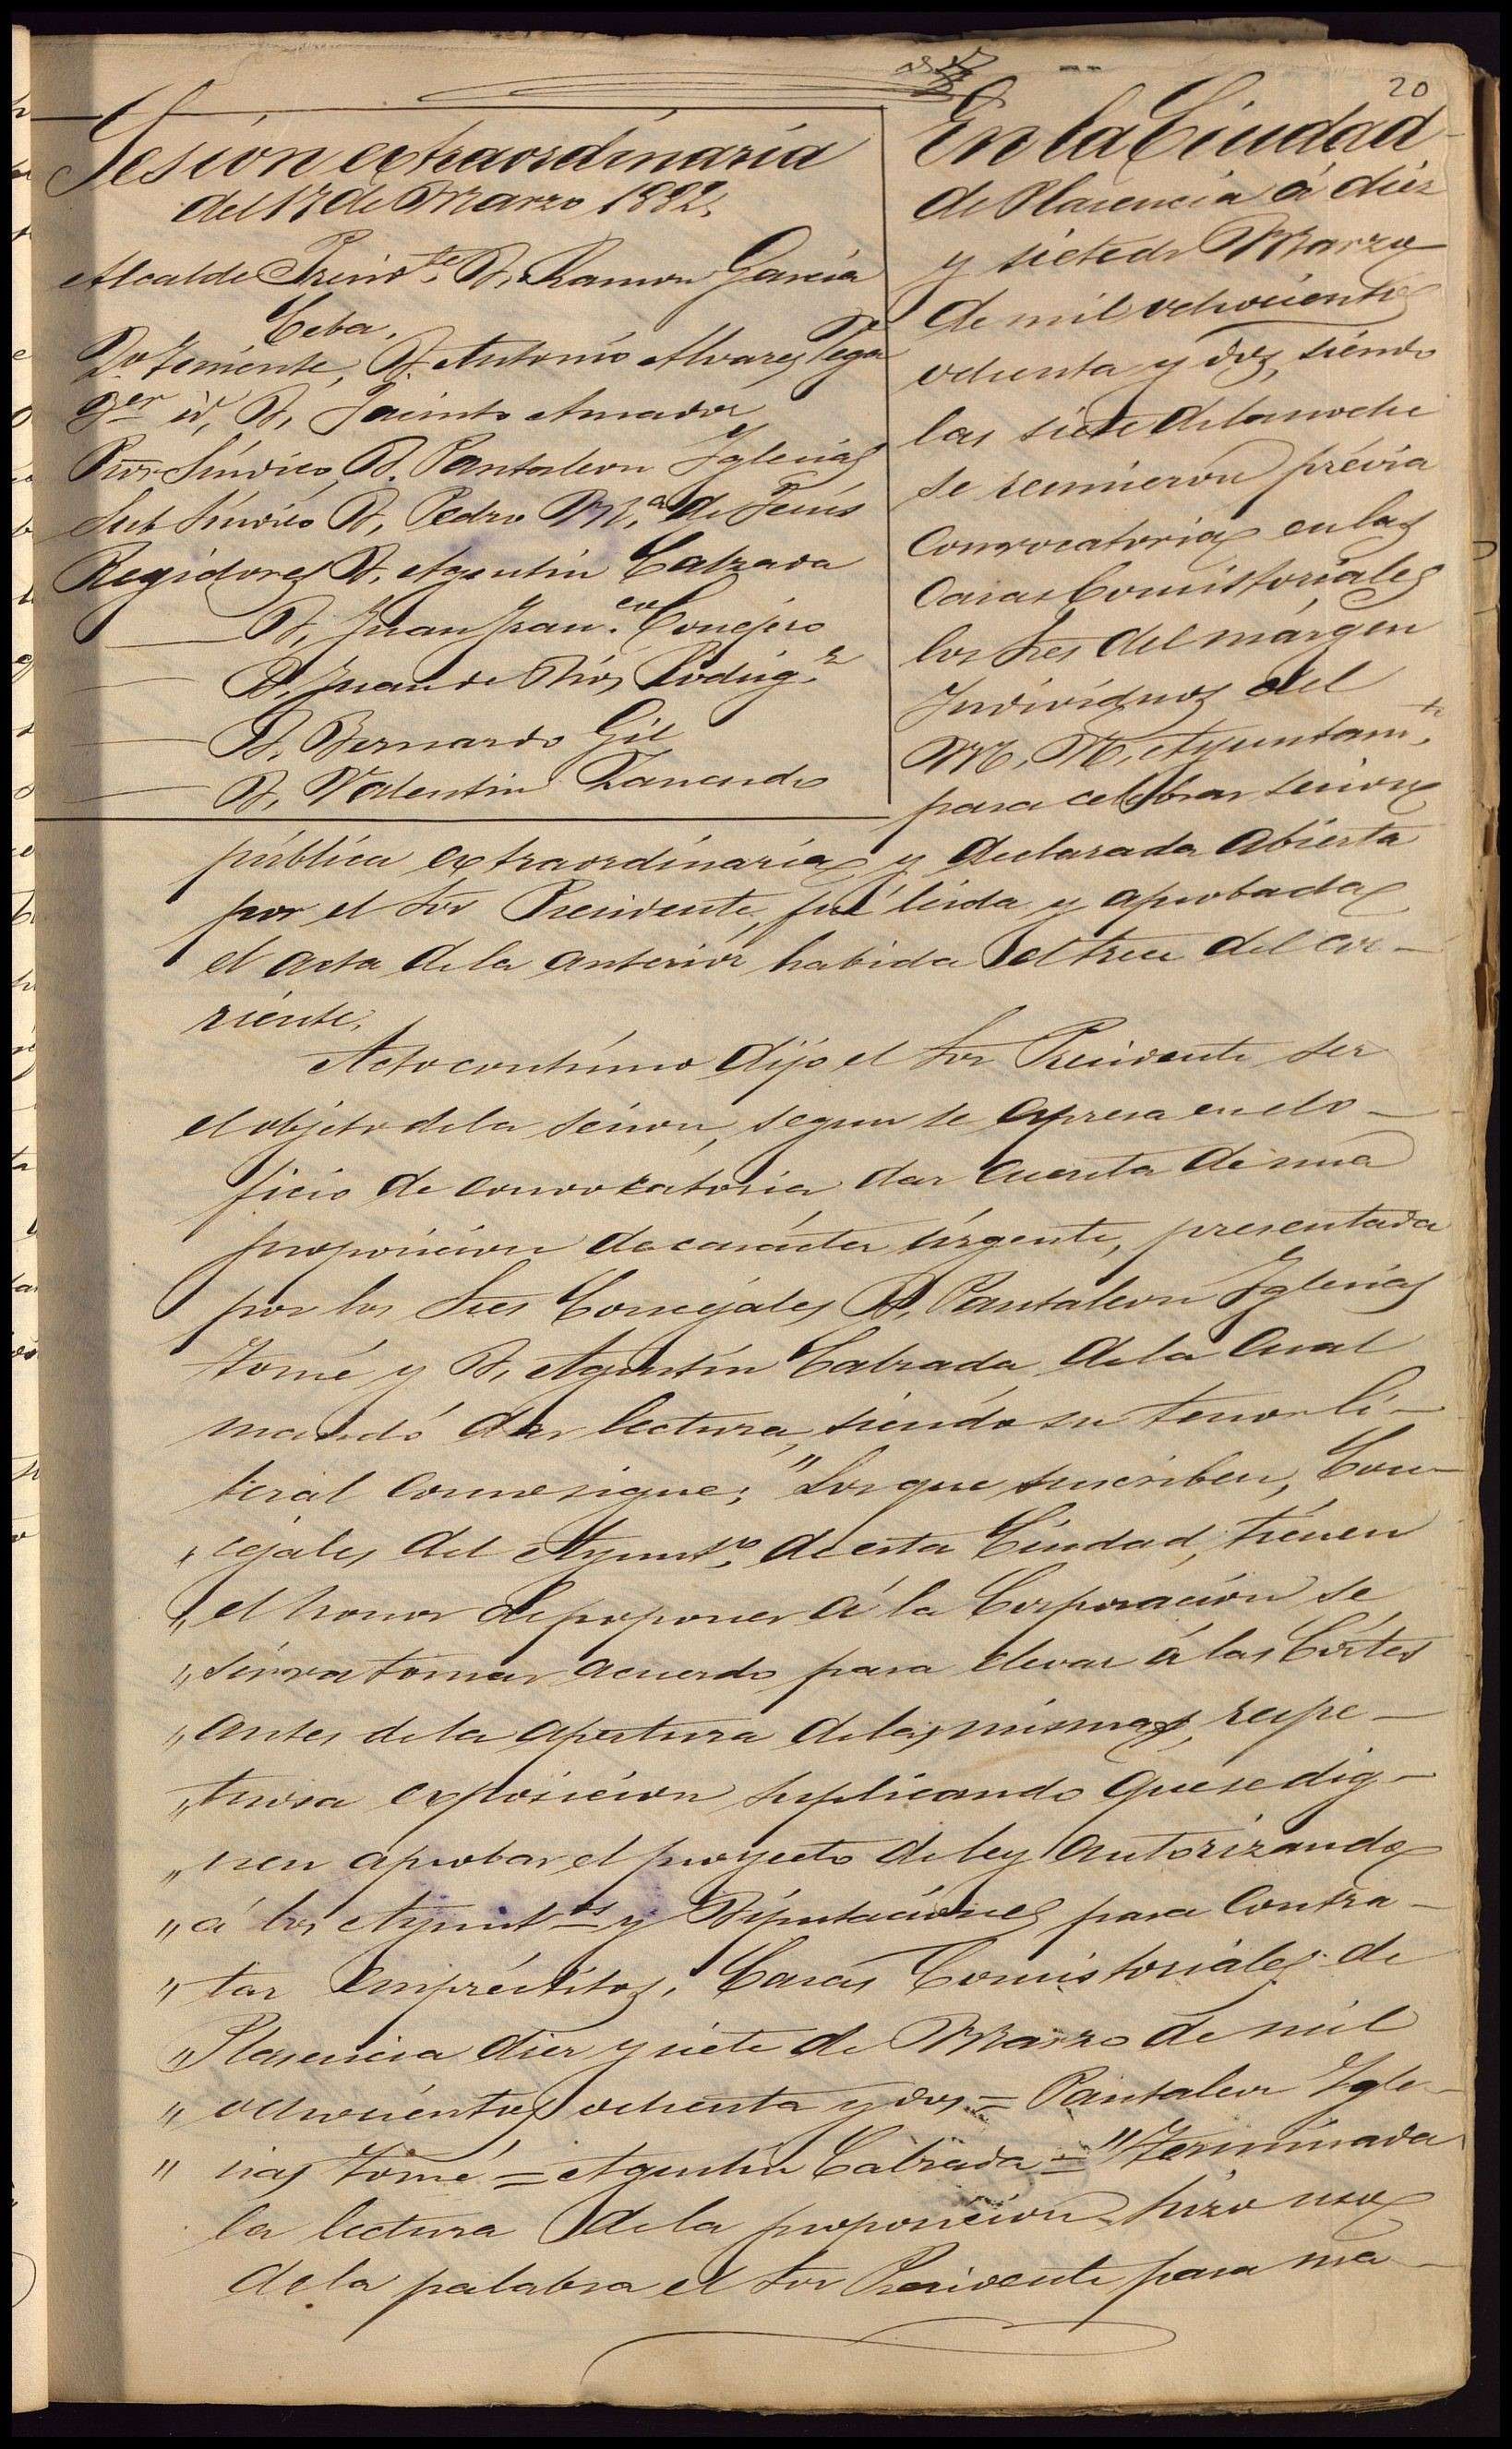 20
Sesión extraordinaria
del 17 de Marzo 1882.
Alcalde Presid.te D. Ramon Garcia
Ceba.
2.o Teniente, D. Antonio Alvarez Vega
3.er id, D. Jacinto Amador
Pror Síndico D. Pantaleon Yglesias
Sub Síndico D. Pedro M.a de Jesús
Regidores D. Agustin Calzada
D. Juan Fran.co Conejero
D. Juan de Dios Rodrig.z
D. Bernardo Gil
D. Valentin
En la Ciudad
de Plasencia á diez
y siete de Marzo
de mil ochocientos
ochenta y dos, siendo
las siete de la noche
se reunieron prévia
convocatoria en las
Casas Consistoriales
los Sres del márgen
Individuos del
M. Y. Ayuntam.to
para celebrar sesion
pública extraordinaria y declarada abierta
por el Sor Presidente, fué leida y aprobada
el acta de la anterior habida el trece del cor-
riente.
Acto contínuo dijo el Sor Presidente ser
el objeto de la sesion, segun se expresa en el o-
ficio de convocatoria dar cuenta de una
proposicion de carácter úrgente, presentada
por los Sres Concejales D. Pantaleon Yglesias
Tomé y D. Agustín Calzada de la cual
mandó dar lectura, siendo su tenor li-
teral como sigue; "Los que suscriben, Con-
" cejales del Ayunt.o de esta Ciudad, tienen
" el honor de poponer á la Corporación se
" sirva tomar acuerdo para elevar á las Córtes
" antes de la apertura de las mismas, respe-
" tuosa exposicion suplicando que se dig-
" nen aprobar el proyecto de ley autorizando
" á los Ayunt.os y Diputaciones para contra-
" tar empréstitos. Casas Consistoriales de
" Plasencia diez y siete de Marzo de mil
" ochocientos ochenta y dos = Pantaleon Ygle-
" sias Tomé = Agustin Calzada = " Terminada
la lectura de la proposicion hizo uso
de la palabra el Sor Presidente para ma-